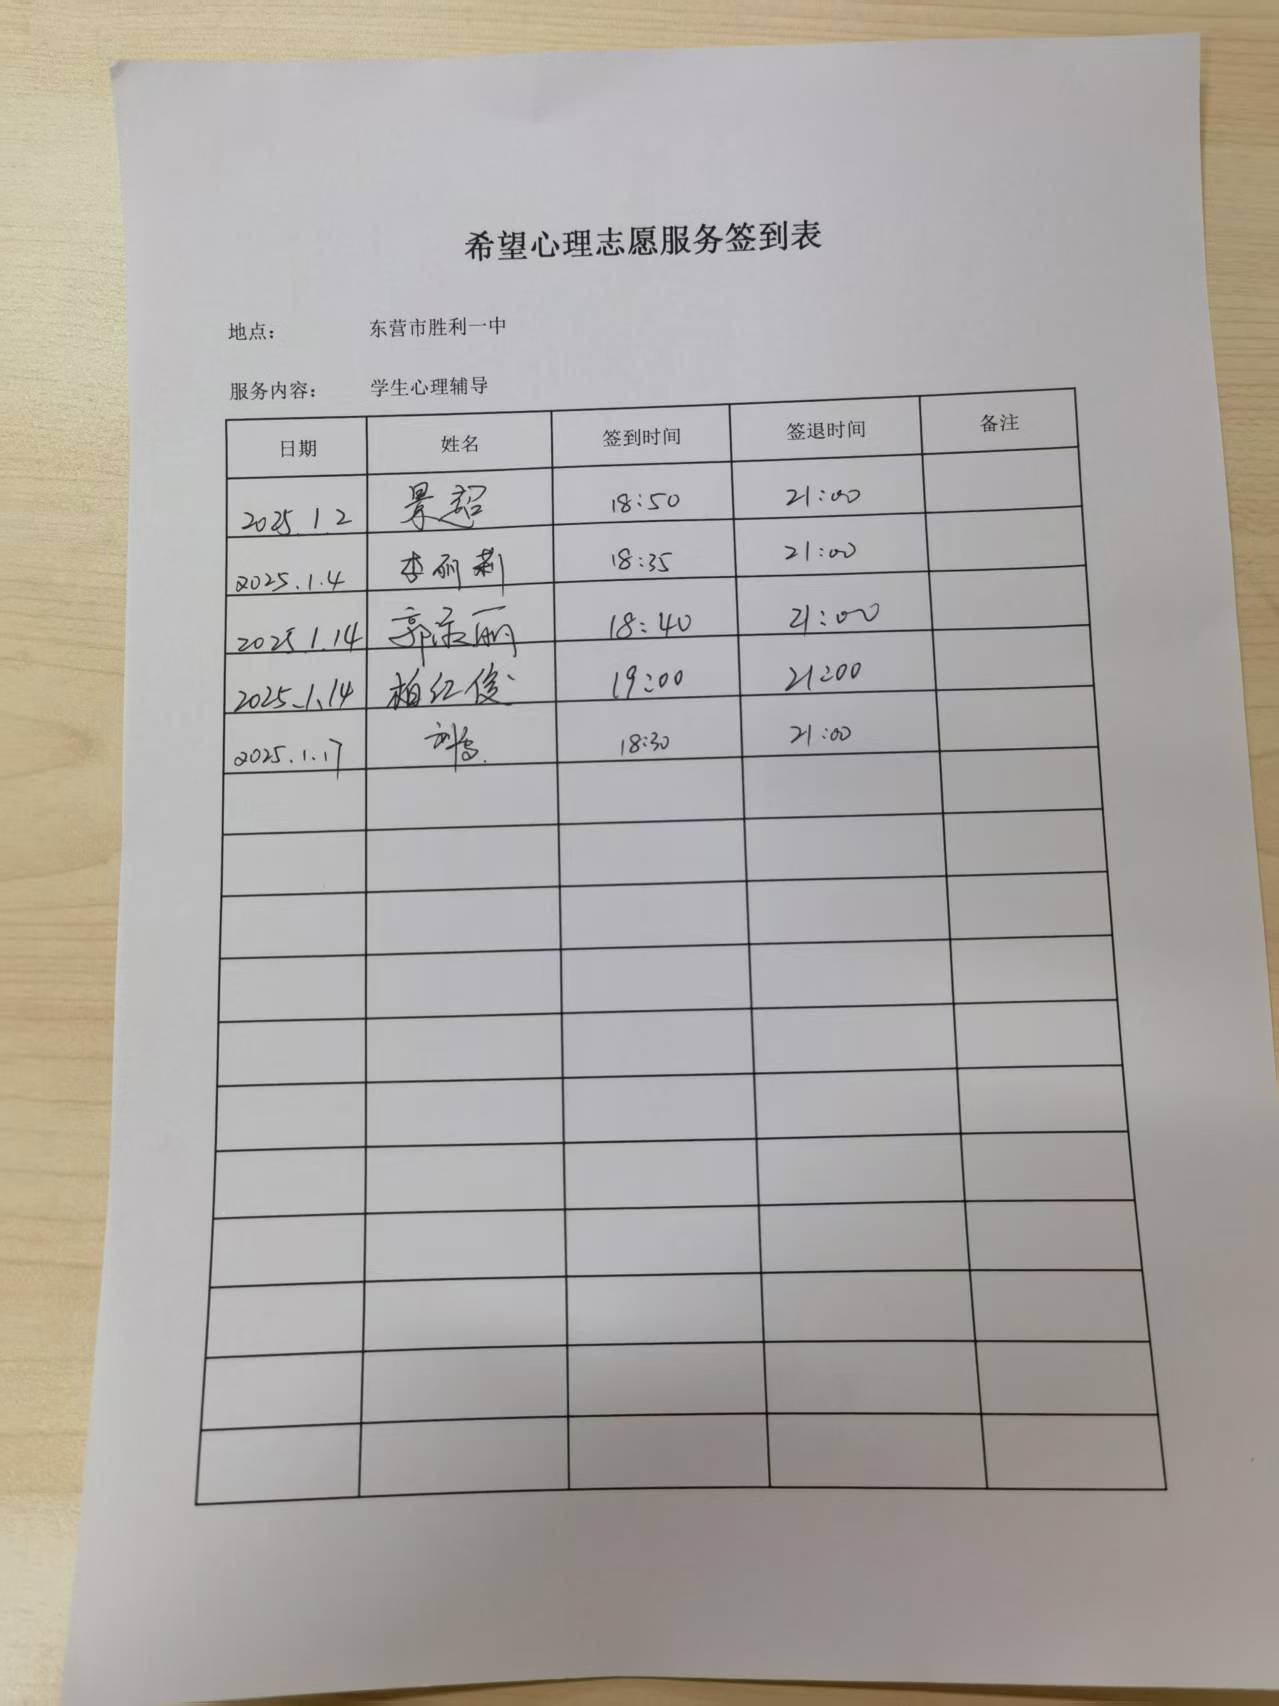 希望心理志愿服务签到表
地点： 东营市胜利一中
服务内容： 学生心理辅导
日期 姓名 签到时间 签退时间 备注
2025.1.2 景超 18:50 21:00
2025.1.4 李丽莉 18:35 21:00
2025.1.14 郭 丽 18:40 21:00
2025.1.14 柏红俊 19:00 21:00
2025.1.17 18:30 21:00